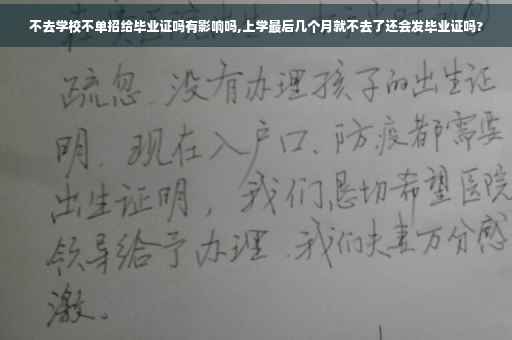 不去学校不单招给毕业证吗有影响吗,上学最后几个月就不去了还会发毕业证吗?
疏忽、没有办理孩子的出生证
明、现在入户口、防疫都需要
出生证明，我们恳切希望医院
领导给予办理、我们夫妻万分感
激。